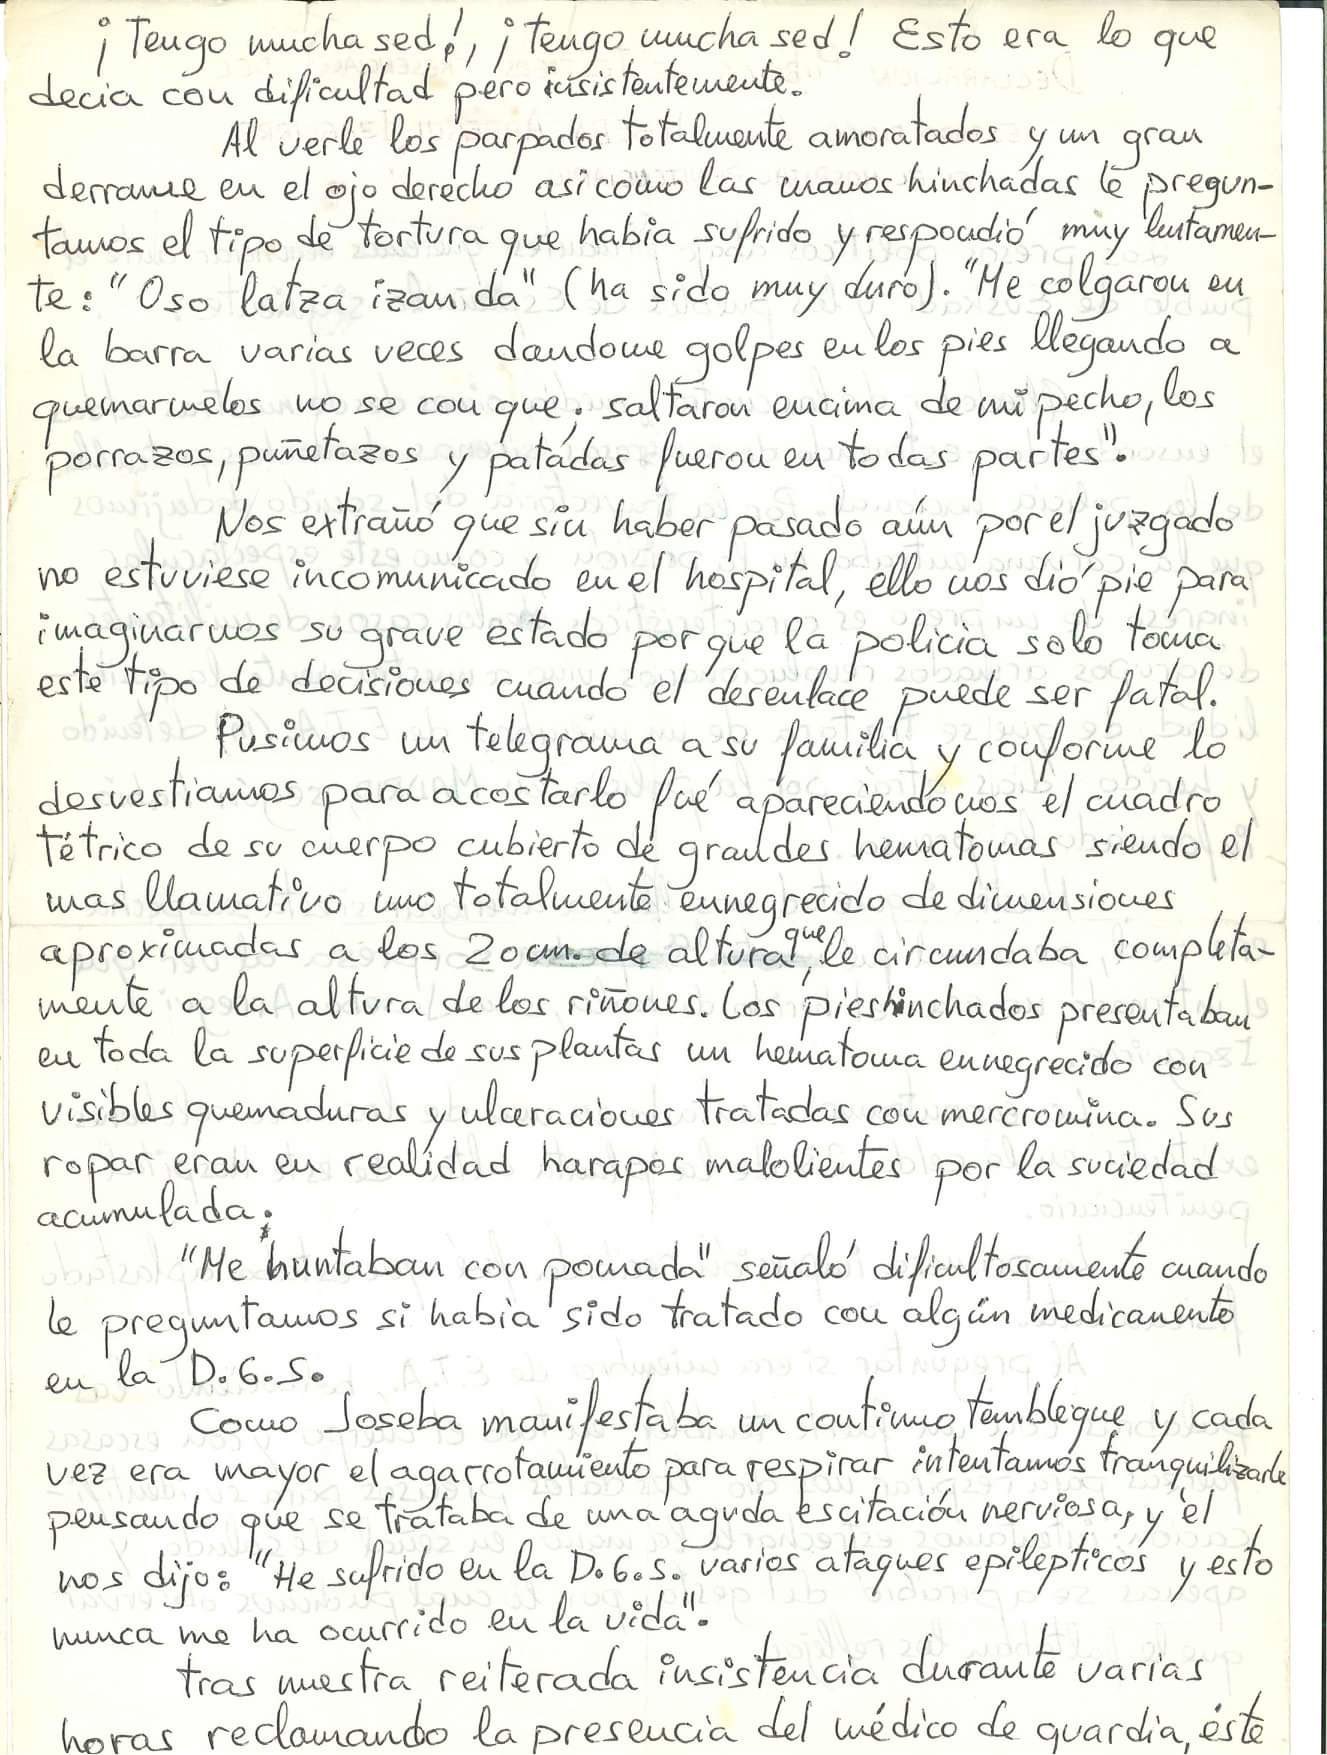 ¡Tengo mucha sed!, ¡tengo mucha sed! Esto era lo que
decia con dificultad pero insistentemente.
Al verle los parpados totalmente amoratados y un gran
derrame en el ojo derecho asi como las manos hinchadas le pregun-
tamos el tipo de tortura que habia sufrido y respondió muy lentamen-
te: "Oso latza izan da" (ha sido muy duro). "Me colgarou en
la barra varias veces dandome golpes en los pies llegando a
quemarmelos no se con que; saltaron encima de mi pecho, los
porrazos, puñetazos y patadas fueron en todas partes".
Nos extrañó que sin haber pasado aún por el juzgado
no estuviese incomunicado en el hospital, ello nos dió pie para
imaginarnos su grave estado porque la policia solo toma
este tipo de decisiones cuando el desenlace puede ser fatal.
Pusimos un telegrama a su familia y conforme lo
desvestiamos para acostarlo fué apareciendonos el cuadro
tétrico de su cuerpo cubierto de grandes hematomas siendo el
mas llamativo uno totalmente ennegrecido de dimensiones
aproximadas a los 20 cm. de altura, que le circundaba completa-
mente a la altura de los riñones. Los pies hinchados presentaban
en toda la superficie de sus plantas un hematoma ennegrecido con
visibles quemaduras y ulceraciones tratadas con mercromina. Sus
ropar eran en realidad harapos malolientes por la suciedad
acumulada.
"Me huntaban con pomada" señaló dificultosamente cuando
le preguntamos si habia sido tratado con algún medicamento
en la D.G.S.
Como Joseba manifestaba un continuo tembleque y cada
vez era mayor el agarrotamiento para respirar intentamos tranquilizarle
pensando que se trataba de una aguda escitación nerviosa, y él
nos dijo: "He sufrido en la D.G.S. varios ataques epilepticos y esto
nunca me ha ocurrido en la vida".
Tras nuestra reiterada insistencia durante varias
horas reclamando la presencia del médico de guardia, éste